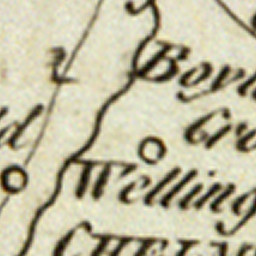 2
Boyl
Gro
ld
Welling
CHELM